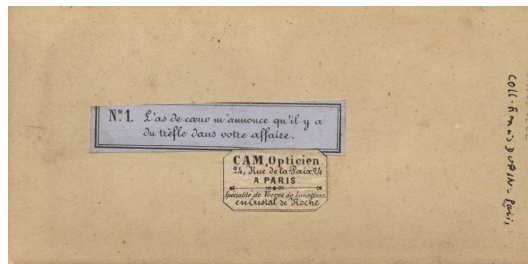 Nº 1. L'as de cœur m'annonce qu'il y a
du trèfle dans votre affaire.
CAM, Opticien
24, Rue de la Paix 24
A PARIS.
Spécialité de Verres de Lunettes
en Cristal de Roche
COLL. DUPIN - Paris